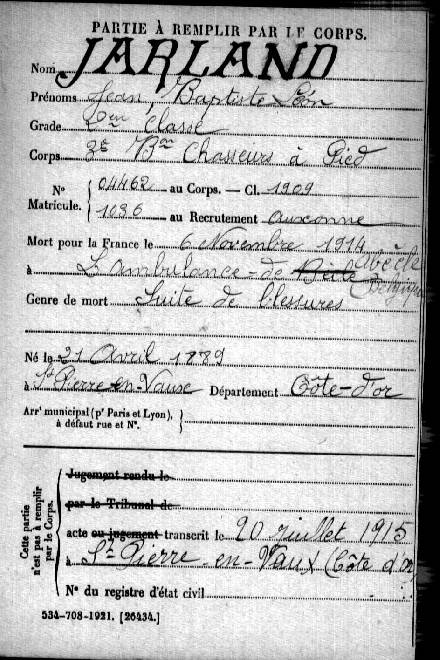 PARTIE À REMPLIR PAR LE CORPS.
Nom JARLAND
Prénoms Jean, Baptiste Léon
Grade 2em Classe
Corps 3e Bon Chasseurs à Pied
N° 04462 au Corps. — Cl. 1909
Matricule. 1036 au Recrutement Auxonne
Mort pour la France le 6 Novembre 1914
à L'ambulance-de Abèele
Genre de mort Suite de blessures
Né le 21 Avril 1889
à St Pierre-en-Vause Département Côte-d'or
Arrt municipal (pr Paris et Lyon),
à défaut rue et N°.
Cette partie n'est pas à remplir par le Corps.
Jugement rendu le
par le Tribunal de
acte ou jugement transcrit le 20 juillet 1915
à St Pierre-en-Vaux (Côte d'or
N° du registre d'état civil
534-708-1921. [26434.]